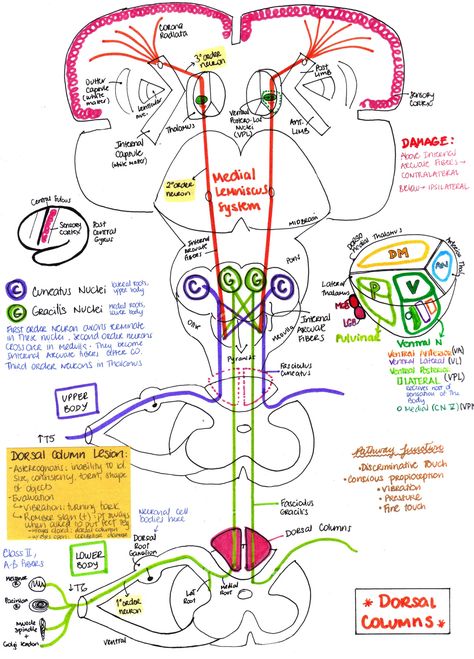 Corona
Radiata
3°order
neuron
Outer
Capsule
(white
matter)
Lentiform
nuc.
Thalamus
Internal
Capsule
(white matter)
Ventral
Postero-Lat
Nuclei
(VPL)
Post
LIMB
Ant.
LIMB
Sensory
Cortex
DAMAGE:
Above Internal
Arcuate Fibers →
CONTRALATERAL
Below → IPSILATERAL
Medial
Lemniscus
System
2°order
neuron
MIDBRAIN
Central Sulcus
Sensory
Cortex
Post
Central
Gyrus
Internal
Arcuate
fibers
Pons
C Cuneatus Nuclei
lateral roots,
upper body
G Gracilis Nuclei
medial roots,
lower body
First order neuron axons terminate
in these nuclei. Second order neurons
cross over in medulla. They become
Internal Arcuate fibers after CO.
Third order neurons in Thalamus
C G G C
Medulla
Internal
Arcuate
Fibers
Pyramids
Fasciculus
Cuneatus
Dorso
Medial Thalamus
Anterior Thal
DM
AN
Lateral
Thalamus
P
V
MGB
LGB
Pulvinar
Ventral N
Ventral Anterior (VA)
Ventral Lateral (VL)
Ventral Posterior
LATERAL (VPL)
Receives most of
sensation of the
body
Medial (CN V) (VP
UPPER
BODY
↑T5
Dorsal Column Lesion:
- Astereognosis: inability to id
size, consistency, form, shape
of objects
- Evaluation
↳ Vibration: tuning fork
↳ Romberg Sign (+): pt sways
when asked to put feet tog
Neuronal cell
bodies here
Fasciculus
Gracilis
Pathway function
- Discriminative Touch
- Conscious proprioception
- Vibration
- Pressure
- Fine touch
Dorsal Columns
Class II,
A-B Fibers
LOWER
BODY
Dorsal
Root
Ganglion
↓T6
1°order
neuron
Lat
Root
Medial
Root
Ventral
Pacinian
Muscle
Spindle
+
Golgi tendon
* DORSAL
COLUMNS *